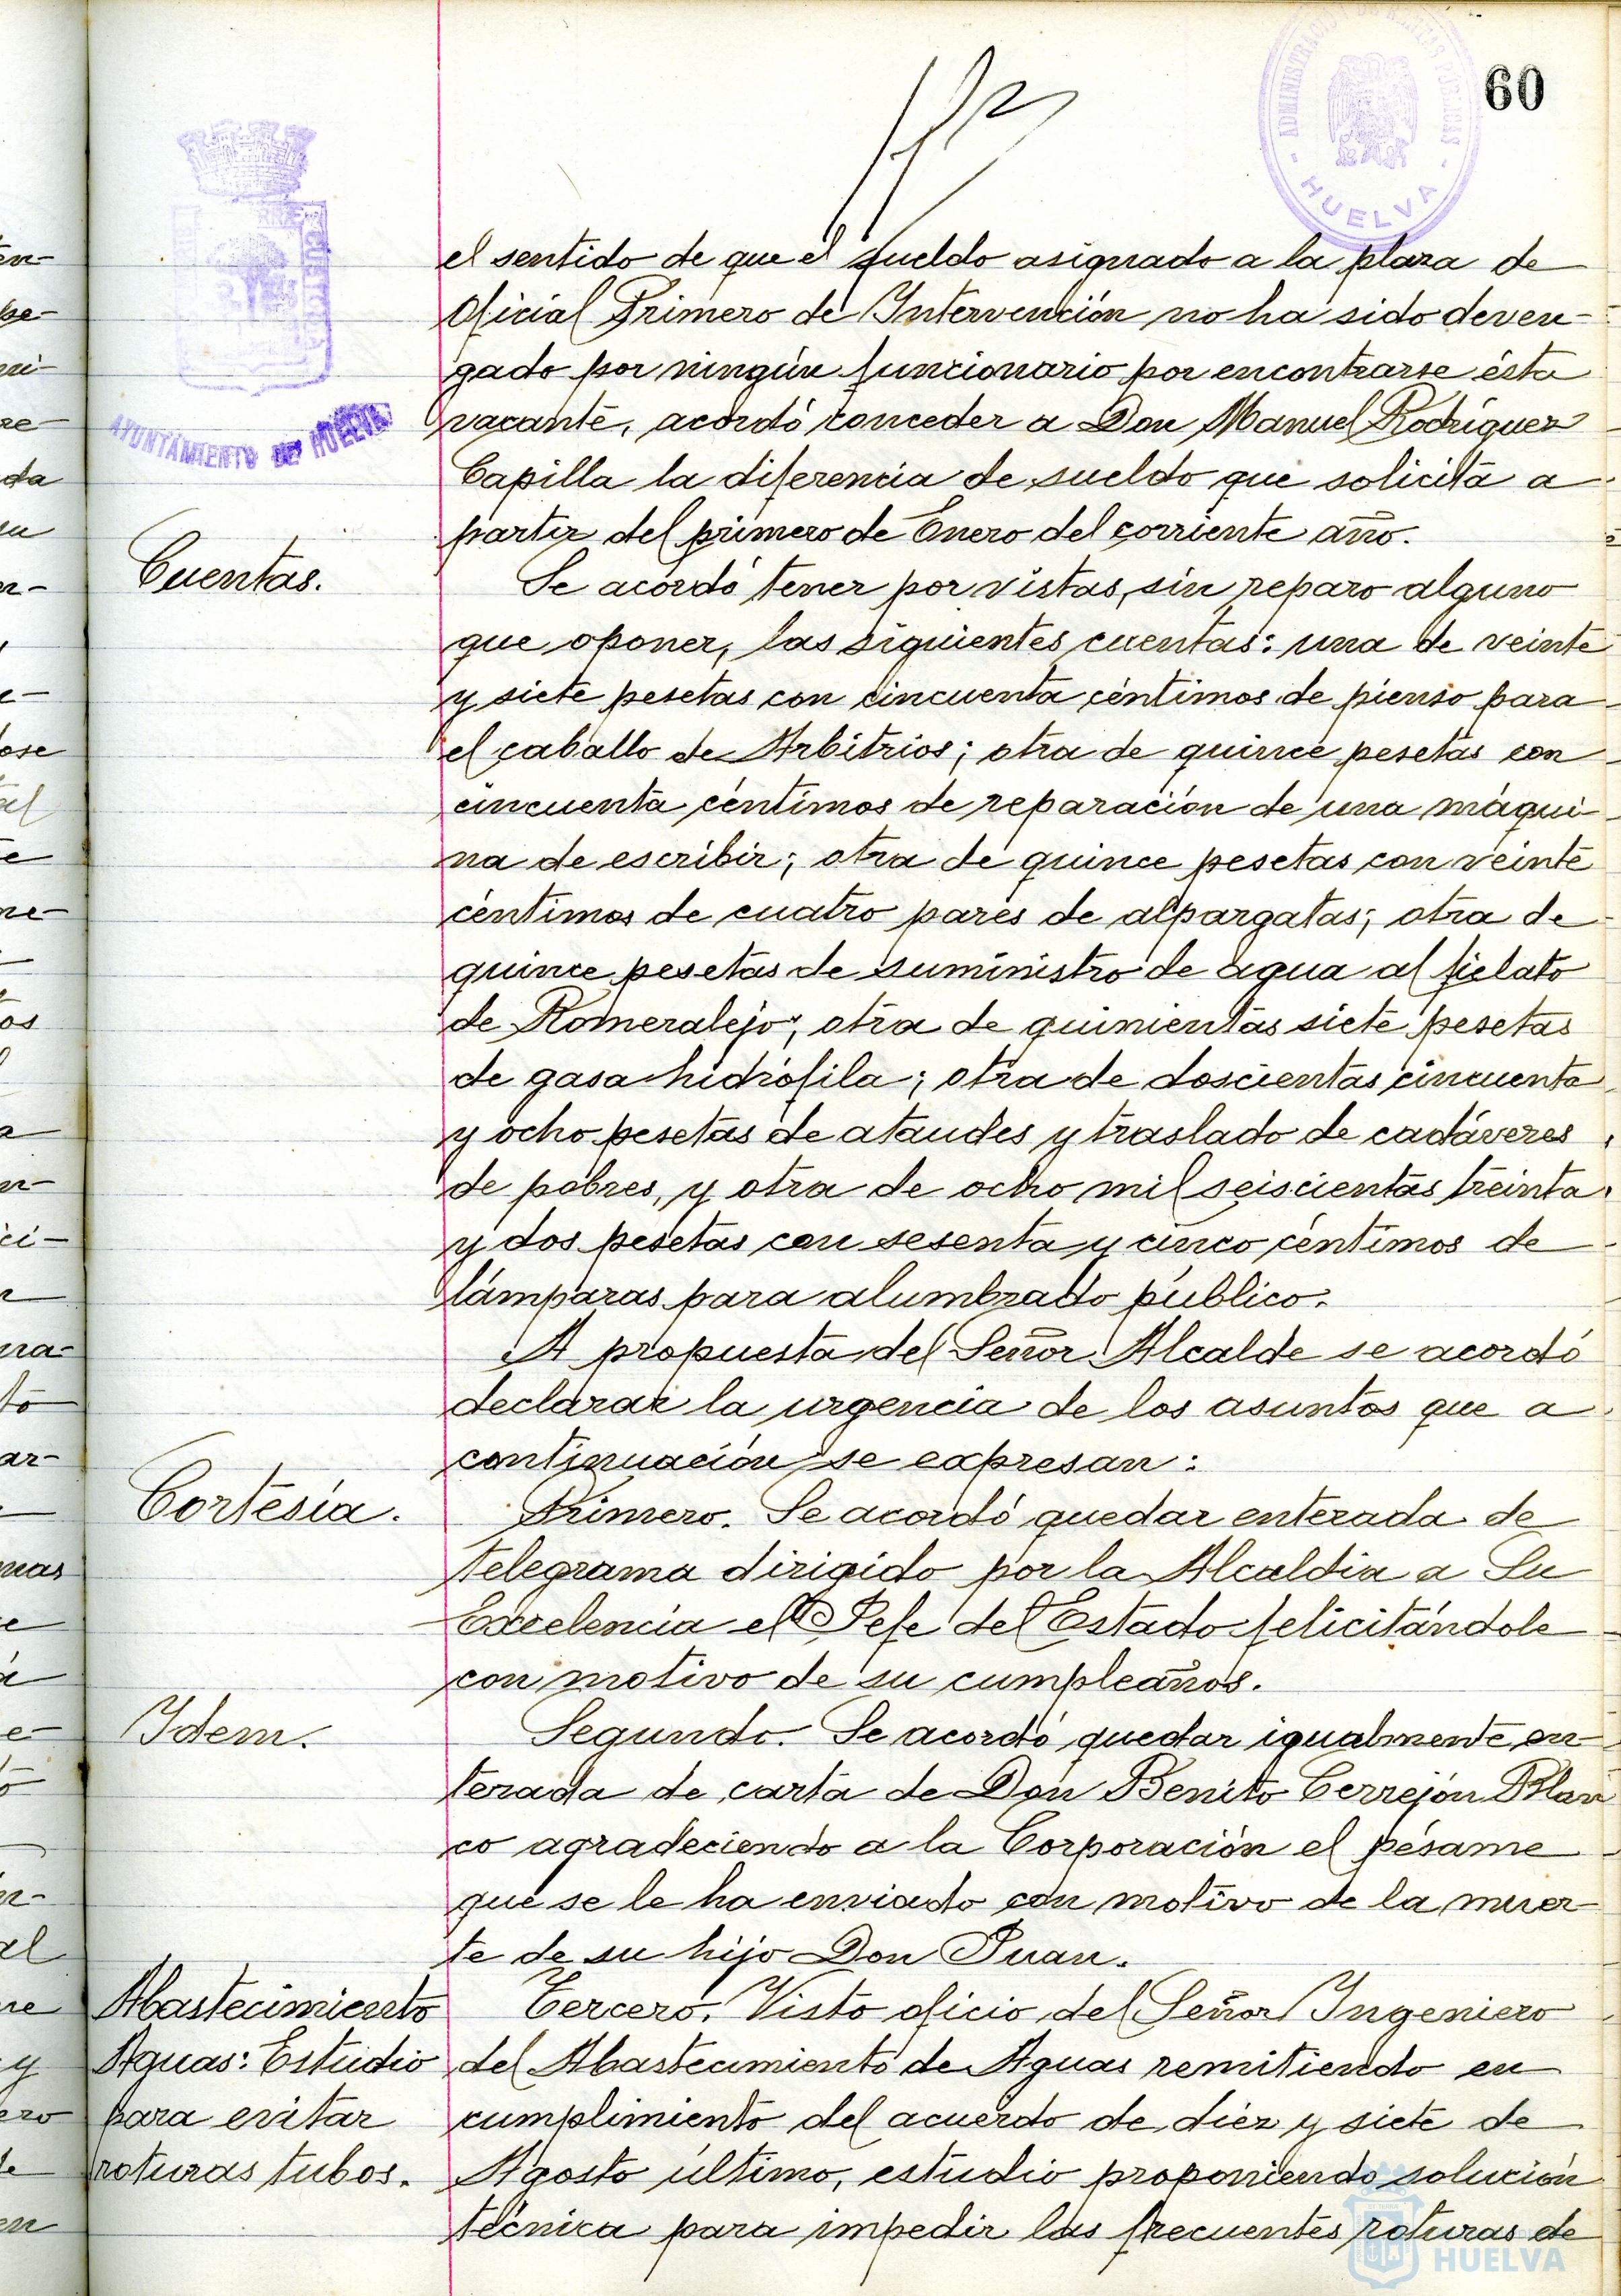 60
ADMINISTRACIÓN DE RENTAS PÚBLICAS
- HUELVA -
AYUNTAMIENTO DE HUELVA
el sentido de que el sueldo asignado a la plaza de
Oficial Primero de Intervención no ha sido deven-
gado por ningún funcionario por encontrarse ésta
vacante, acordó conceder a Don Manuel Rodríguez
Capilla la diferencia de sueldo que solicita a
partir del primero de Enero del corriente año.
Cuentas.
Se acordó tener por vistas, sin reparo alguno
que oponer, las siguientes cuentas: una de veinte
y siete pesetas con cincuenta céntimos de pienso para
el caballo de Arbitrios; otra de quince pesetas con
cincuenta céntimos de reparación de una máqui-
na de escribir; otra de quince pesetas con veinte
céntimos de cuatro pares de alpargatas; otra de
quince pesetas de suministro de agua al fielato
de Romeralejo; otra de quinientas siete pesetas
de gasa hidrófila; otra de doscientas cincuenta
y ocho pesetas de ataudes y traslado de cadáveres
de pobres, y otra de ocho mil seiscientas treinta
y dos pesetas con sesenta y cinco céntimos de
lámparas para alumbrado público.
A propuesta del Señor Alcalde se acordó
declarar la urgencia de los asuntos que a
continuación se expresan:
Cortesía.
Primero. Se acordó quedar enterada de
telegrama dirigido por la Alcaldia a Su
Excelencia el Jefe del Estado felicitándole
con motivo de su cumpleaños.
Idem.
Segundo. Se acordó quedar igualmente en-
terada de carta de Don Benito Cerrejón Blan
co agradeciendo a la Corporación el pésame
que se le ha enviado con motivo de la muer-
te de su hijo Don Juan.
Abastecimiento
Aguas: Estudio
para evitar
roturas tubos.
Tercero. Visto oficio del Señor Ingeniero
del Abastecimiento de Aguas remitiendo en
cumplimiento del acuerdo de diez y siete de
Agosto último, estudio proponiendo solución
técnica para impedir las frecuentes roturas de
HUELVA